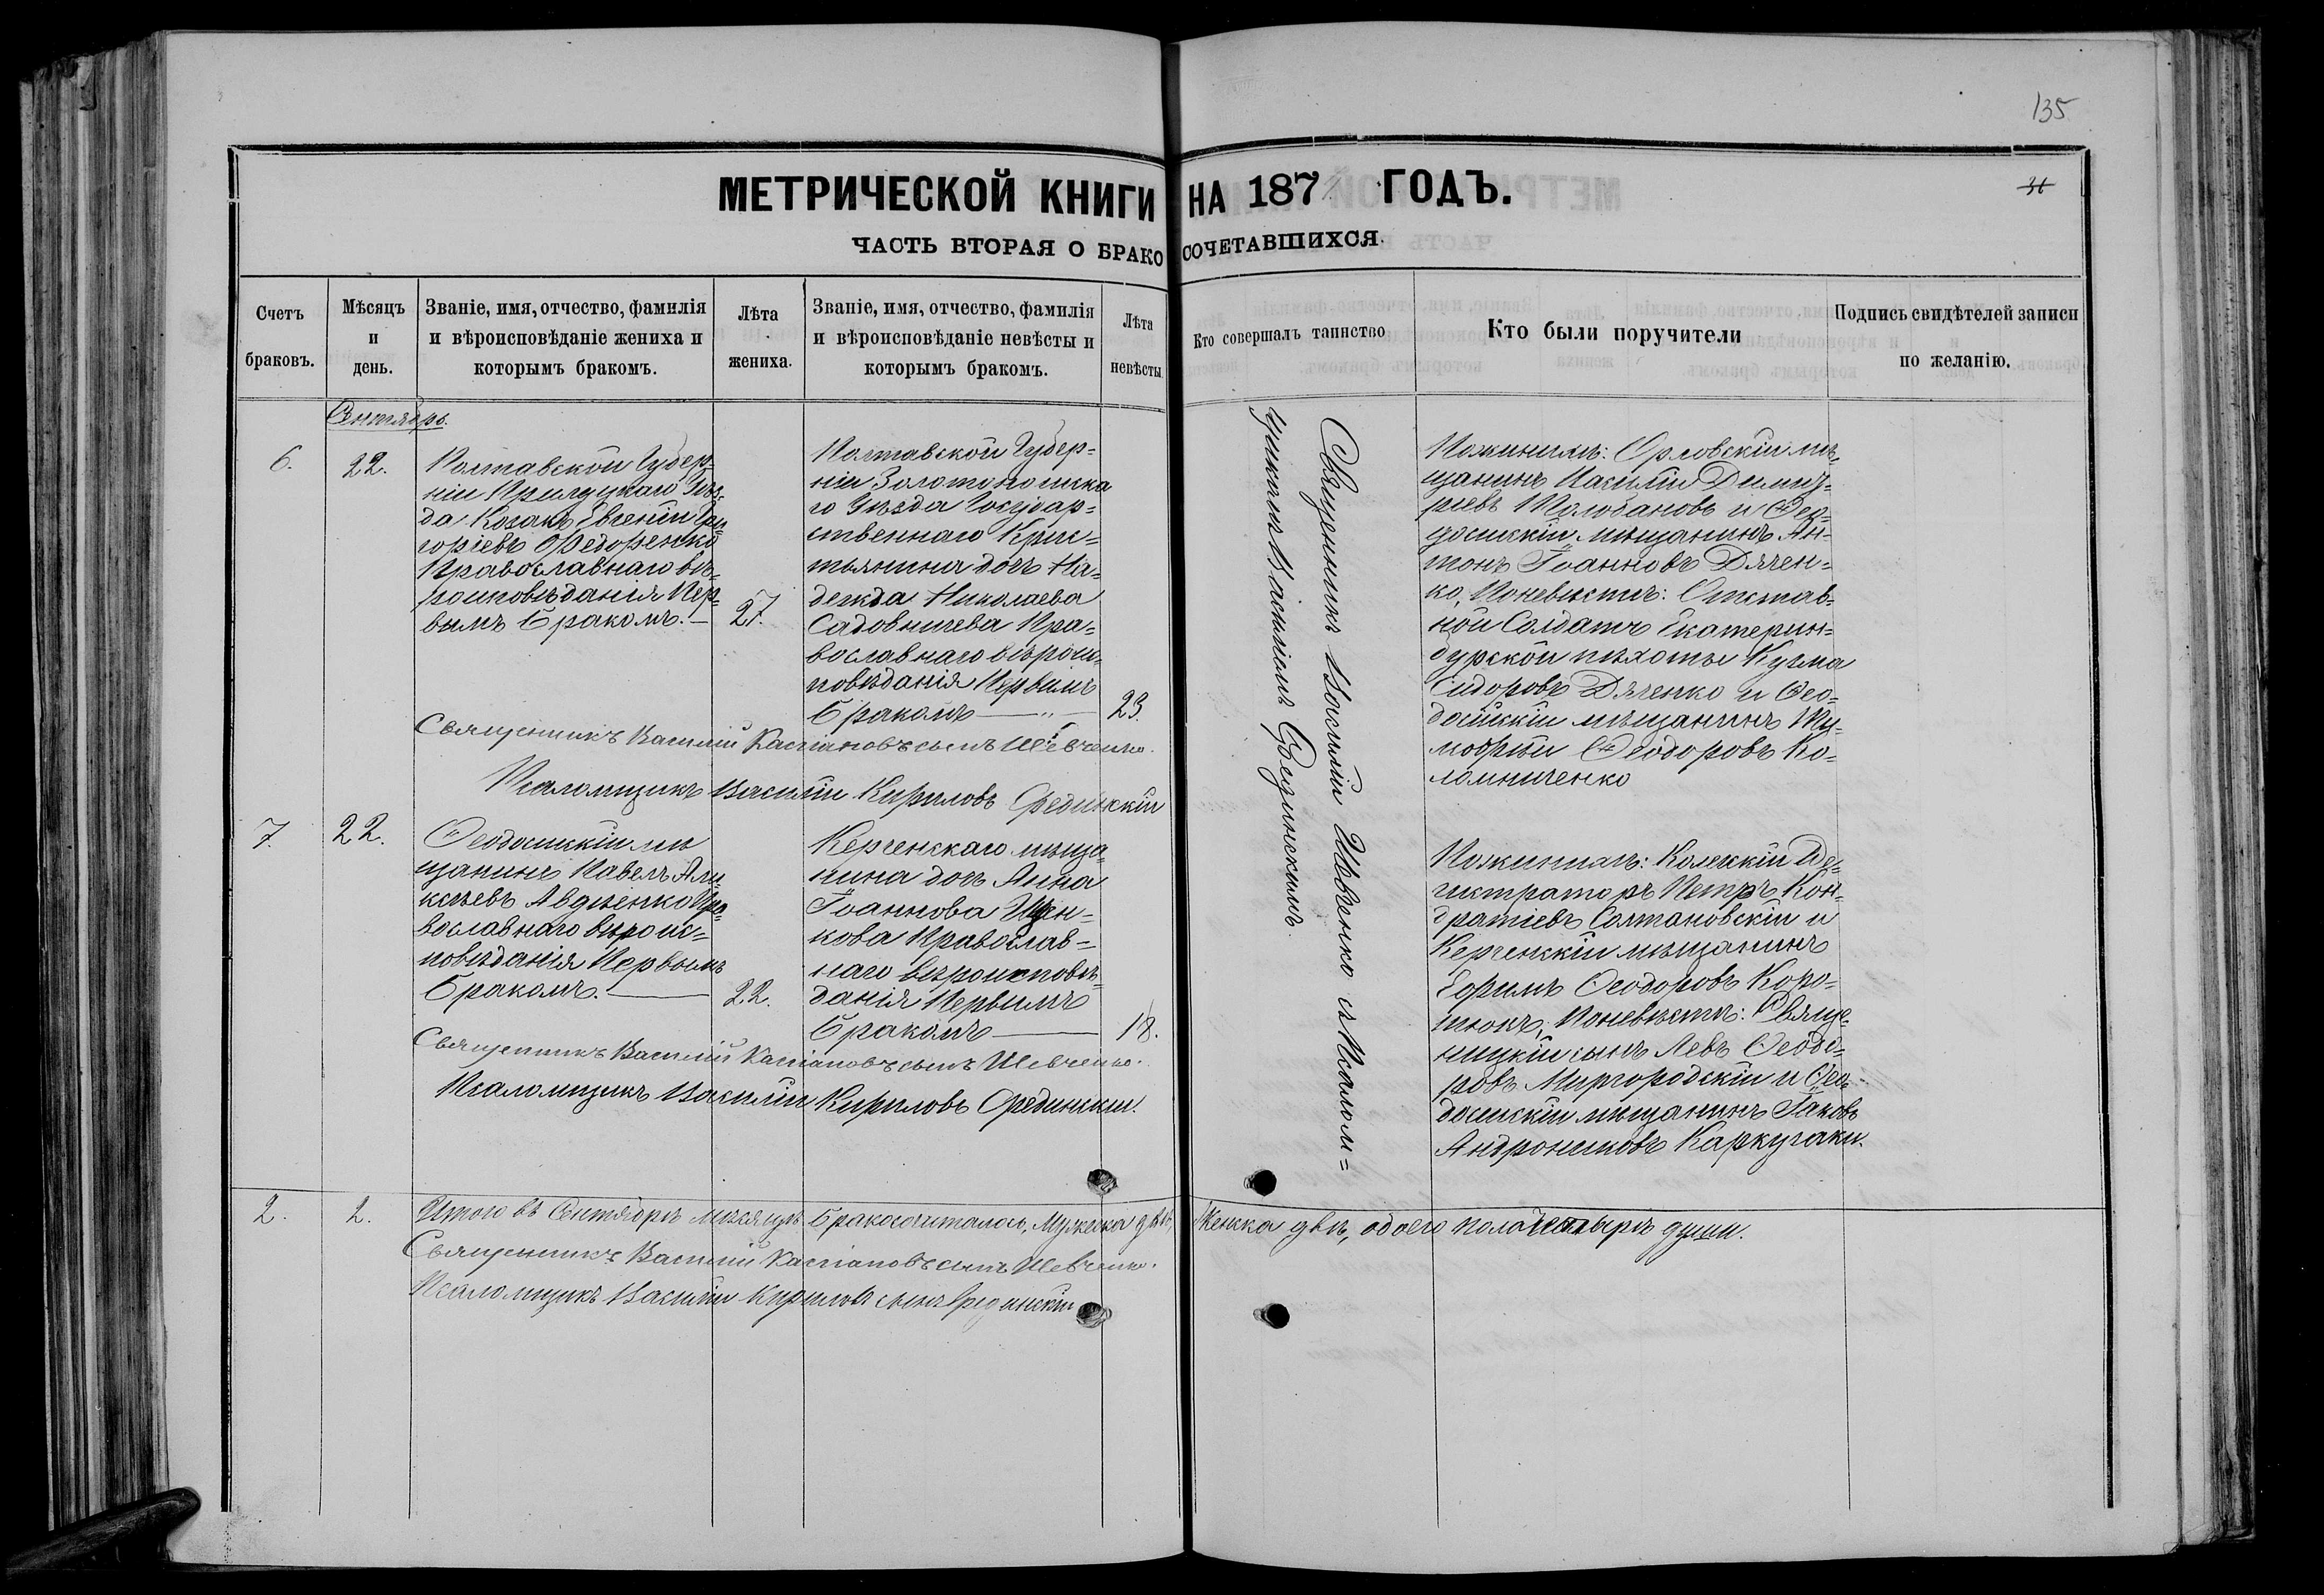 135
МЕТРИЧЕСКОЙ КНИГИ НА 187 ГОДЪ.
36
ЧАСТЬ ВТОРАЯ О БРАКОСОЧЕТАВШИХСЯ.
Счетъ браковъ.
Мѣсяцъ и день.
Званіе, имя, отчество, фамилія
и вѣроисповѣданіе жениха и
которымъ бракомъ.
Лѣта жениха.
Званіе, имя, отчество, фамилія
и вѣроисповѣданіе невѣсты и
которымъ бракомъ.
Лѣта невѣсты.
Кто совершалъ таинство
Кто были поручители
Подпись свидѣтелей записи
по желанію.
Сентябрь.
6.
22.
Полтавской Губер=
ніи Прилуцкаго Уѣз=
да Козакъ Евгеній Гри
горіевъ Федоренко
Православнаго вѣ=
роисповѣданія Пер=
вымъ Бракомъ.—
27.
Полтавской Губер=
ніи Золотоношска
го Уѣзда Государ=
ственнаго Крис=
тьянина дочь На=
дежда Николаева
Садовничева Пра=
вославнаго вѣроис=
повѣданія Первымъ
Бракомъ —
23.
Священникъ Василій Шевченко и Псалом=
щикомъ Василіемъ Срединскимъ.
Пожинихѣ: Орловскій мѣ=
щанинъ Василій Димит=
ріевъ Молобановъ и Фео=
досискій мѣщанинъ Ан=
тонъ Іоанновъ Дячен=
ко, Поневѣстѣ: Отстав=
ной Солдатъ Екатерин=
бурской пѣхоты Кузма
Сидоровъ Дяченко и Фео=
досійскій мѣщанинъ
Феодоровъ Ко=
ломниченко
Священникъ Василій Касіановъ сынъ Шевченко.
Псаломщикъ Василій Кириловъ Срединскій
7.
22.
Феодосискій мѣ
щанинъ Павелъ Але
ксѣевъ Авдіенко Пра=
вославнаго вѣроис=
повѣданія Первымъ
Бракомъ. —
22.
Керченскаго мѣща
нина дочь Анна
Іоаннова
кова Православ=
наго вѣроисповѣ=
данія Первымъ
Бракомъ —
18.
Пожинихѣ: Колежскій Ре=
гистраторъ Петръ Кон=
дратіевъ Солтановскій и
Керченскій мѣщанинъ
Ефимъ Феодоровъ Коро=
тюкъ, Поневѣстѣ: Свяще=
ницкій сынъ Левъ Феодо=
ровъ Миргородскій и Фео=
досискій мѣщанинъ Іаковъ
Андрониковъ Каркучаки.
Священникъ Василій Касіановъ сынъ Шевченко.
Псаломщикъ Василій Кириловъ Срединскій.
2.
2.
Итого въ Сентябрѣ мѣсяцѣ Бракосочиталось, Мужеска двѣ, Женска двѣ, обоего пола четыріе души.
Священникъ Василій Касіановъ сынъ Шевченко.
Псаломщикъ Василій Кириловъ сынъ Срединскій